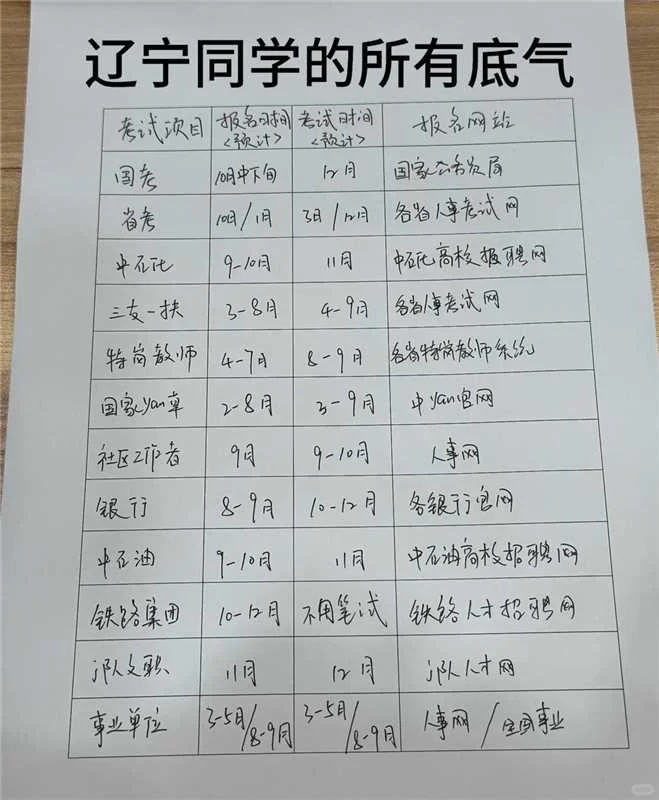 辽宁同学的所有底气
考试项目 报名时间<预计> 考试时间<预计> 报名网站
国考 10月中下旬 12月 国家公务员局
省考 10月/1月 3月/12月 各省人事考试网
中石化 9-10月 11月 中石化高校报聘网
三支一扶 3-8月 4-9月 各省人事考试网
特岗教师 4-7月 8-9月 各省特岗教师系统
国家yan草 2-8月 3-9月 中yan官网
社区工作者 9月 9-10月 人事网
银行 8-9月 10-12月 各银行官网
中石油 9-10月 11月 中石油高校招聘网
铁路集团 10-12月 不用笔试 铁路人才招聘网
jl队文职 11月 12月 jl队人才网
事业单位 3-5月/8-9月 3-5月/8-9月 人事网/全国事业